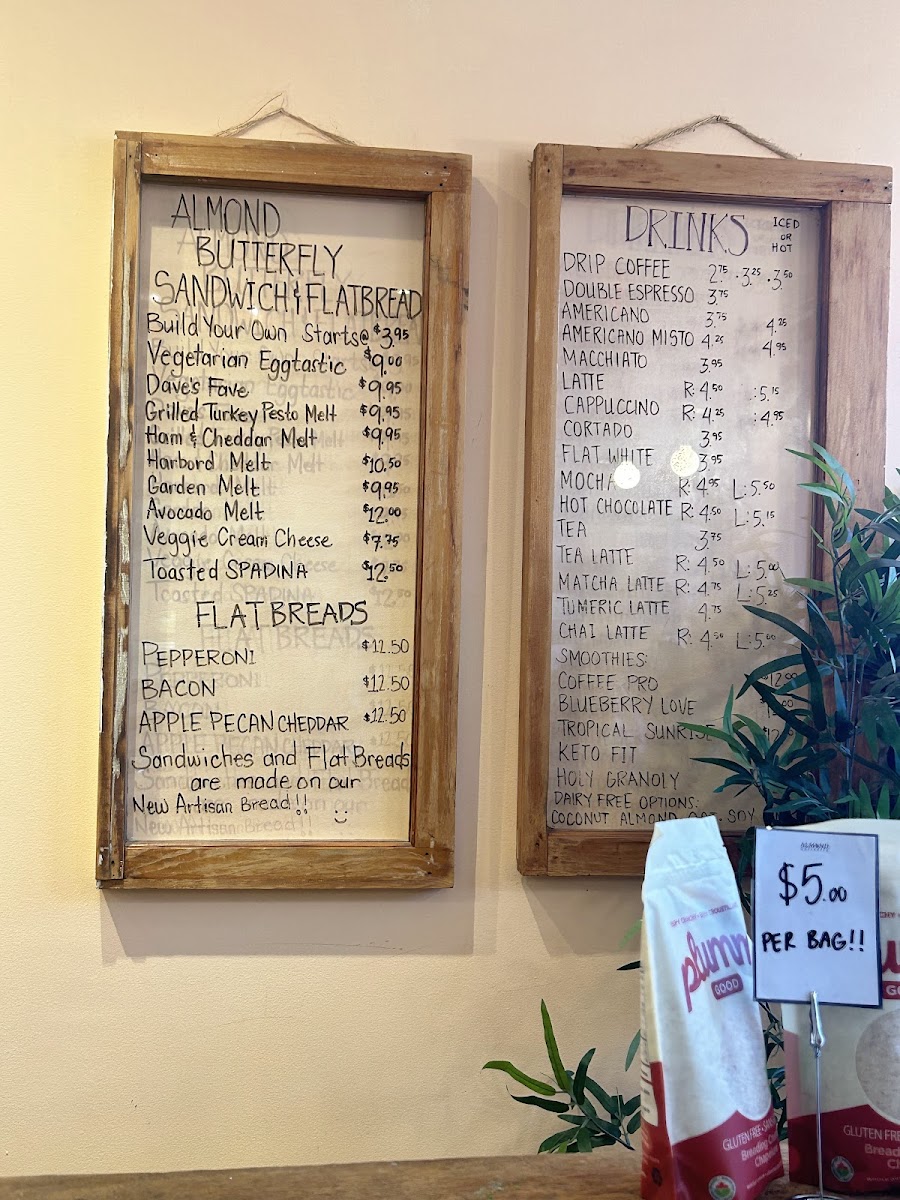 ALMOND
BUTTERFLY
SANDWICH & FLATBREAD
Build Your Own Starts@ $3.95
Vegetarian Eggtastic $9.00
Dave's Fave $9.95
Grilled Turkey Pesto Melt $9.95
Ham & Cheddar Melt $9.95
Harbord Melt $10.50
Garden Melt $9.95
Avocado Melt $12.00
Veggie Cream Cheese $7.75
Toasted SPADINA $12.50
FLATBREADS
PEPPERONI $12.50
BACON $12.50
APPLE PECAN CHEDDAR $12.50
Sandwiches and FlatBreads
are made on our
New Artisan Bread!!
DRINKS ICED
OR
HOT
DRIP COFFEE 2.75 · 3.25 · 3.50
DOUBLE ESPRESSO 3.75
AMERICANO 3.75 4.25
AMERICANO MISTO 4.25 4.95
MACCHIATO 3.95
LATTE R: 4.50 :5.15
CAPPUCCINO R: 4.25 :4.95
CORTADO 3.95
FLAT WHITE 3.95
MOCHA R: 4.95 L: 5.50
HOT CHOCOLATE R: 4.50 L: 5.15
TEA 3.75
TEA LATTE R: 4.50 L: 5.00
MATCHA LATTE R: 4.75 L: 5.25
TUMERIC LATTE 4.75
CHAI LATTE R: 4.50 L: 5.00
SMOOTHIES:
COFFEE PRO 12.00
BLUEBERRY LOVE
TROPICAL SUNRISE
KETO FIT
HOLY GRANOLY
DAIRY FREE OPTIONS:
COCONUT ALMOND OAT SOY
ALMOND
$5.00
PER BAG!!
plumm
GOOD
GLUTEN FREE
GLUTEN FRE